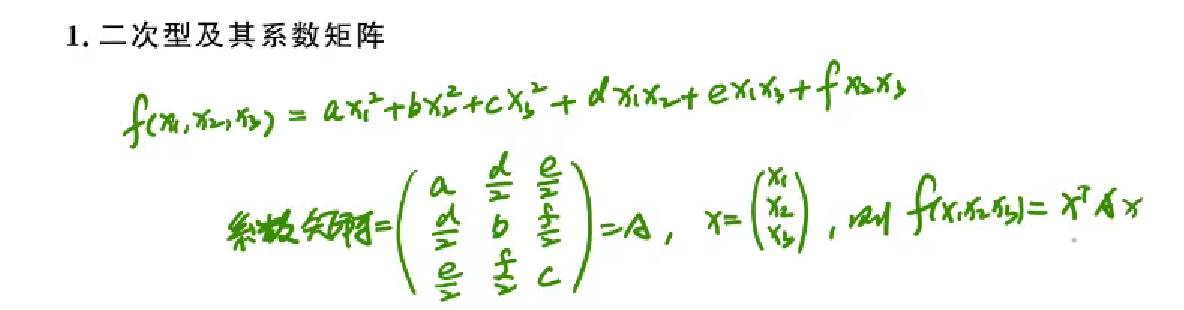 1. 二次型及其系数矩阵
f(x₁,x₂,x₃) = ax₁²+bx₂²+cx₃²+dx₁x₂+ex₁x₃+fx₂x₃
系数矩阵=(a d/2 e/2; d/2 b f/2; e/2 f/2 c)=A, x=(x₁; x₂; x₃), 则 f(x₁x₂x₃)= xᵀAx